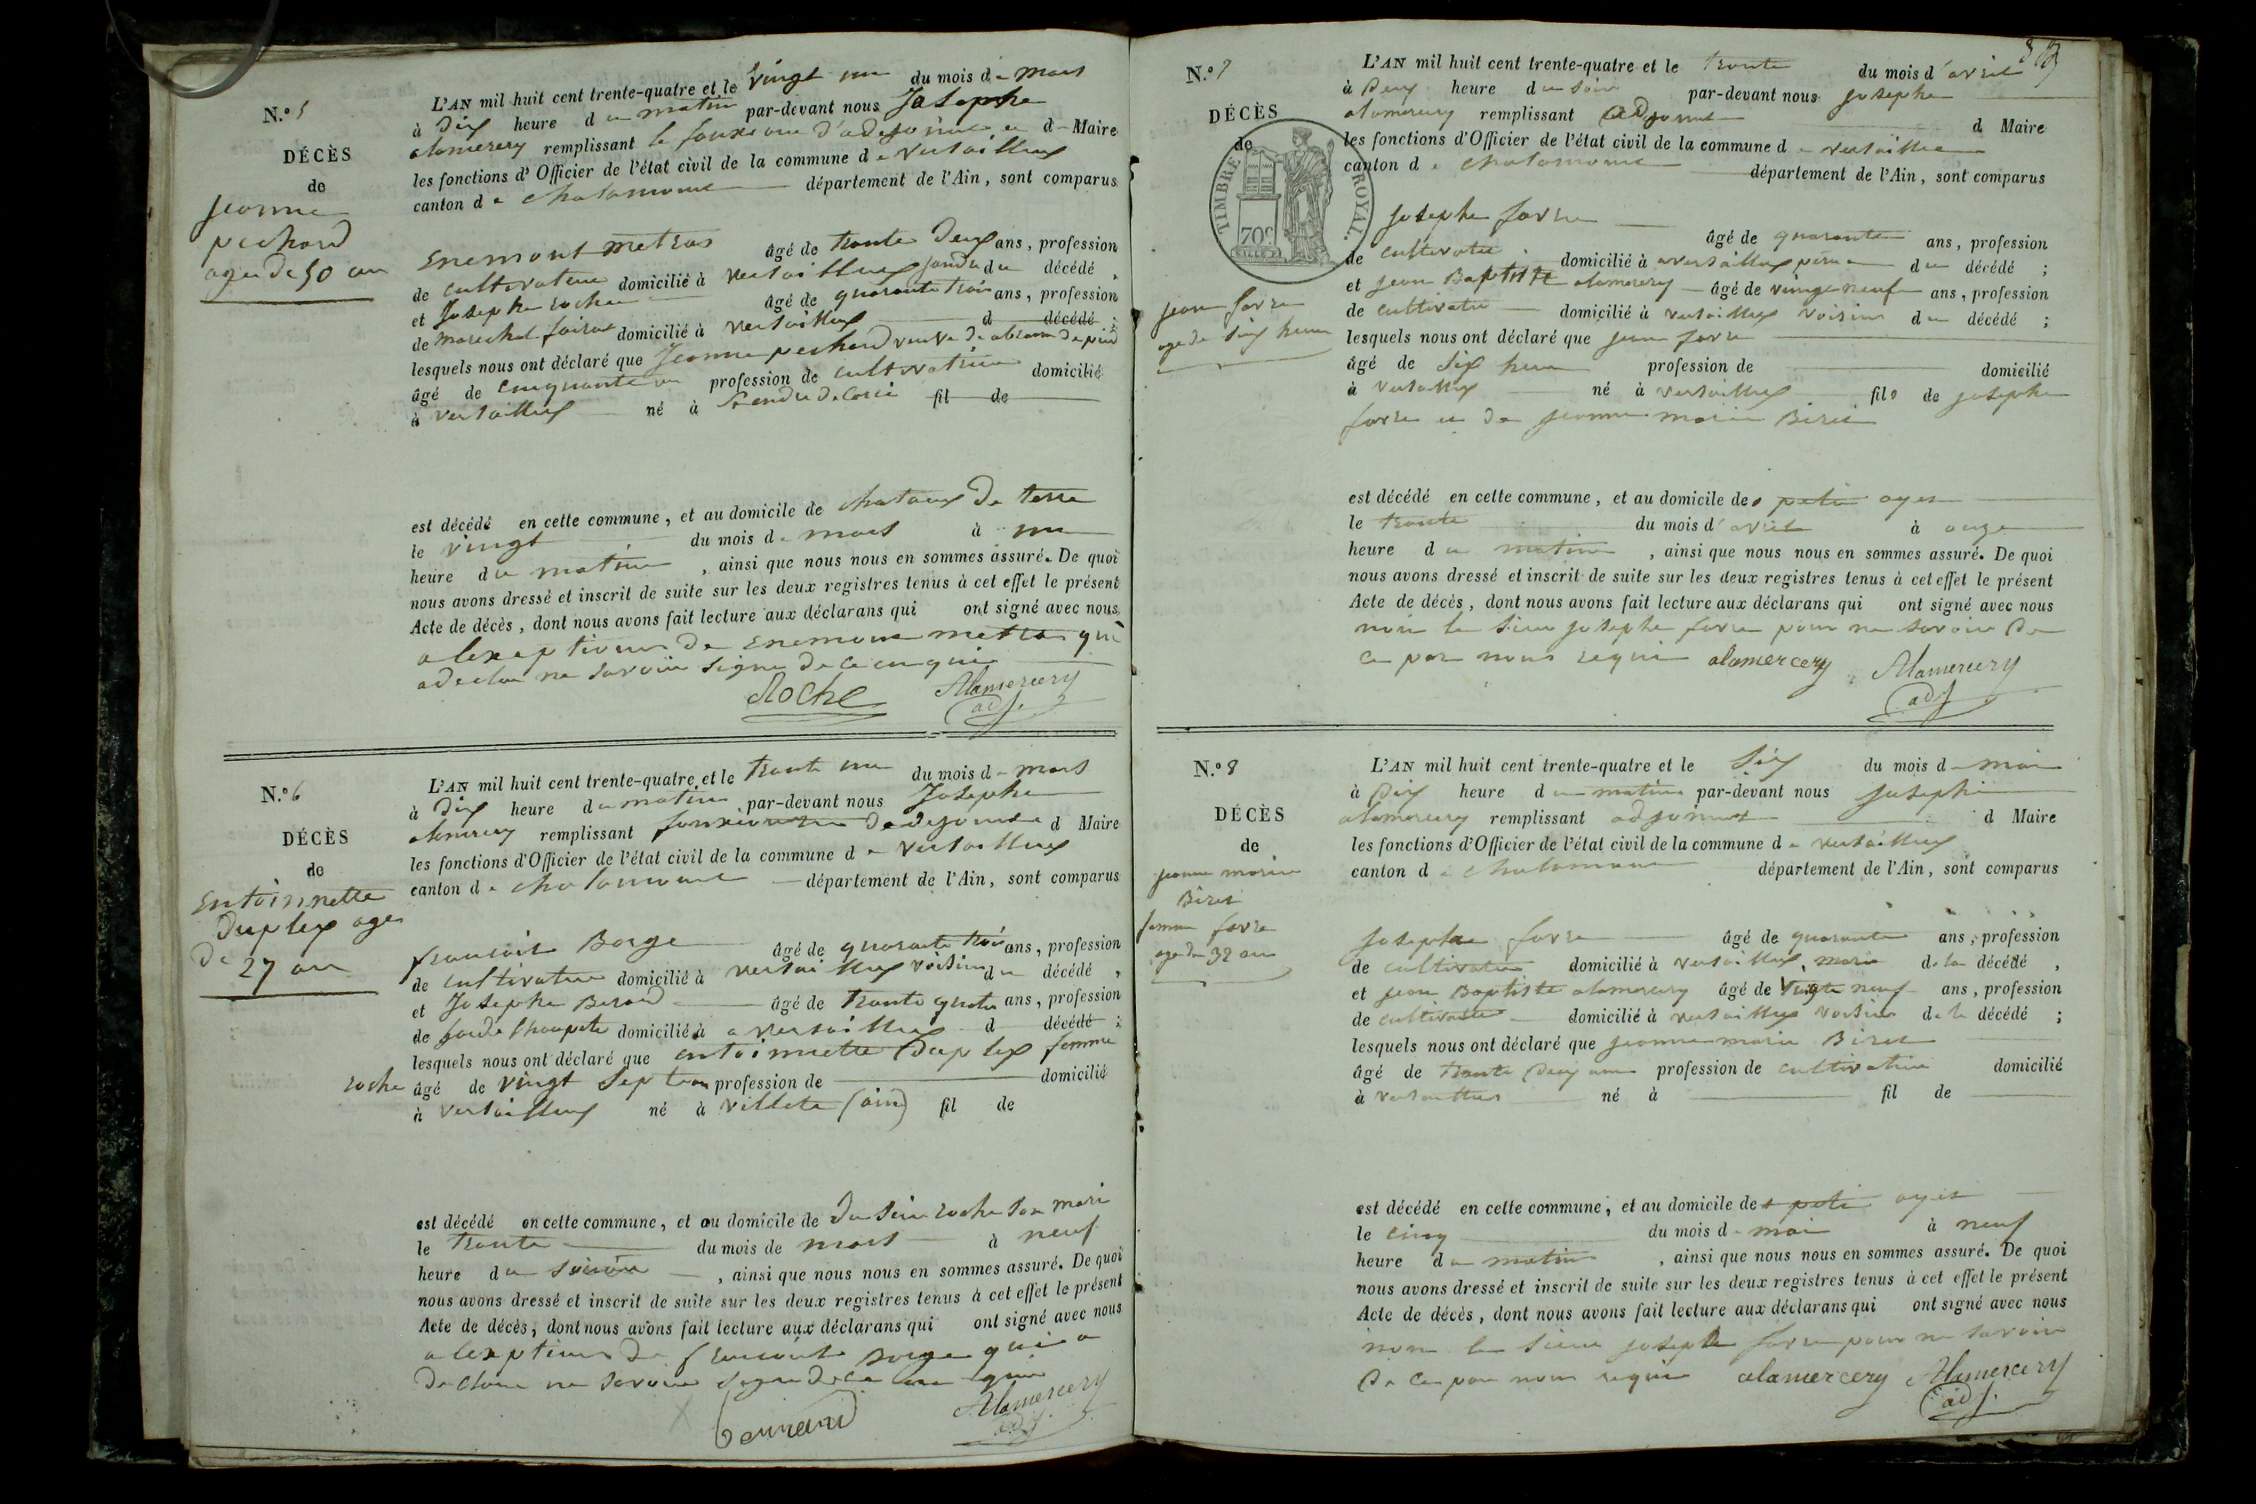 N.º 5
DÉCÈS
de
jeanne
pechard
agee de 50 an
L'AN mil huit cent trente-quatre et le vingt un du mois de mars
à dix heure du matin par-devant nous Josephe
alamercery remplissant le fonxione d'adejoint et d Maire
les fonctions d'Officier de l'état civil de la commune de versailleux
canton de chalamont département de l'Ain, sont comparus
Enemont metras âgé de trante deux ans, profession
de cultivateur domicilié à versailleux jandu du décédé,
et Josephe roche âgé de quarante trois ans, profession
de marechal domicilié à versailleux d décédé;
lesquels nous ont déclaré que Jeanne pechard veuve de
âgé de cinquante an profession de cultivatrice domicilié
à versailleux né à fil de
est décédé en cette commune, et au domicile de chataux de terre
le vingt du mois de mars à un
heure du matin, ainsi que nous nous en sommes assuré. De quoi
nous avons dressé et inscrit de suite sur les deux registres tenus à cet effet le présent
Acte de décès, dont nous avons fait lecture aux déclarans qui ont signé avec nous
a lexeptions de Enemont metras qui
a declare ne savoir signe de ce enquis
Roche Alamercery
adj.
N.º 6
DÉCÈS
de
Entoinnette
Duplex agee
de 27 an
L'AN mil huit cent trente-quatre et le trante un du mois de mars
à dix heure du matin par-devant nous Josephe
alamercery remplissant fonxionnee de adejointe d Maire
les fonctions d'Officier de l'état civil de la commune de versailleux
canton de chalamont département de l'Ain, sont comparus
francois Borge âgé de quarante trois ans, profession
de cultivateur domicilié à versailleux voisin du décédé,
et Josephe Berard âgé de trante quatre ans, profession
de garde champete domicilié à a versailleux d décédé;
lesquels nous ont déclaré que entoinnette Duplex femme
roche âgé de vingt sept an profession de domicilié
à versailleux né à villete (ain) fil de
est décédé en cette commune, et au domicile de du sieur roche son mari
le trante du mois de mars à neuf
heure du soir, ainsi que nous nous en sommes assuré. De quoi
nous avons dressé et inscrit de suite sur les deux registres tenus à cet effet le présent
Acte de décès, dont nous avons fait lecture aux déclarans qui ont signé avec nous
a lexeptions de francois Borge qui a
declare ne savoir signe de ce enquis
Berrard Alamercery
adj.
N.º 7
DÉCÈS
de
TIMBRE ROYAL.
70c
jean favre
age de six heure
L'AN mil huit cent trente-quatre et le trante du mois d'avril
à deux heure du soir par-devant nous josephe
alamercery remplissant adjoint d Maire
les fonctions d'Officier de l'état civil de la commune de versailleux
canton de chalamont département de l'Ain, sont comparus
josephe favre âgé de quarante ans, profession
de cultivateur domicilié à a versailleux pere du décédé;
et jean Baptiste alamercery âgé de vingt neuf ans, profession
de cultivateur domicilié à versailleux voisin du décédé;
lesquels nous ont déclaré que jean favre
âgé de six heure profession de domicilié
à versailleux né à versailleux fils de josephe
favre et de jeanne marie Biret
est décédé en cette commune, et au domicile de petit ayes
le trante du mois d'avril à onze
heure du matin, ainsi que nous nous en sommes assuré. De quoi
nous avons dressé et inscrit de suite sur les deux registres tenus à cet effet le présent
Acte de décès, dont nous avons fait lecture aux déclarans qui ont signé avec nous
non le sieur josephe favre pour ne savoir de
ce par nous requis alamercery Alamercery
adj
N.º 8
DÉCÈS
de
jeanne marie
Biret
femme favre
agee de 32 an
L'AN mil huit cent trente-quatre et le six du mois de mai
à dix heure du matin par-devant nous josephe
alamercery remplissant adjoint d Maire
les fonctions d'Officier de l'état civil de la commune de versailleux
canton de chalamont département de l'Ain, sont comparus
josephe favre âgé de quarante ans, profession
de cultivateur domicilié à versailleux, mari de la décédé,
et jean Baptiste alamercery âgé de vingt neuf ans, profession
de cultivateur domicilié à versailleux voisin de la décédé;
lesquels nous ont déclaré que jeanne marie Biret
âgé de trante deux ans profession de cultivatrice domicilié
à versailleux né à fil de
est décédé en cette commune, et au domicile de petit ayes
le cinq du mois de mai à neuf
heure du matin, ainsi que nous nous en sommes assuré. De quoi
nous avons dressé et inscrit de suite sur les deux registres tenus à cet effet le présent
Acte de décès, dont nous avons fait lecture aux déclarans qui ont signé avec nous
non le sieur josephe favre pour ne savoir
de ce par nous requis alamercery Alamercery
adj.